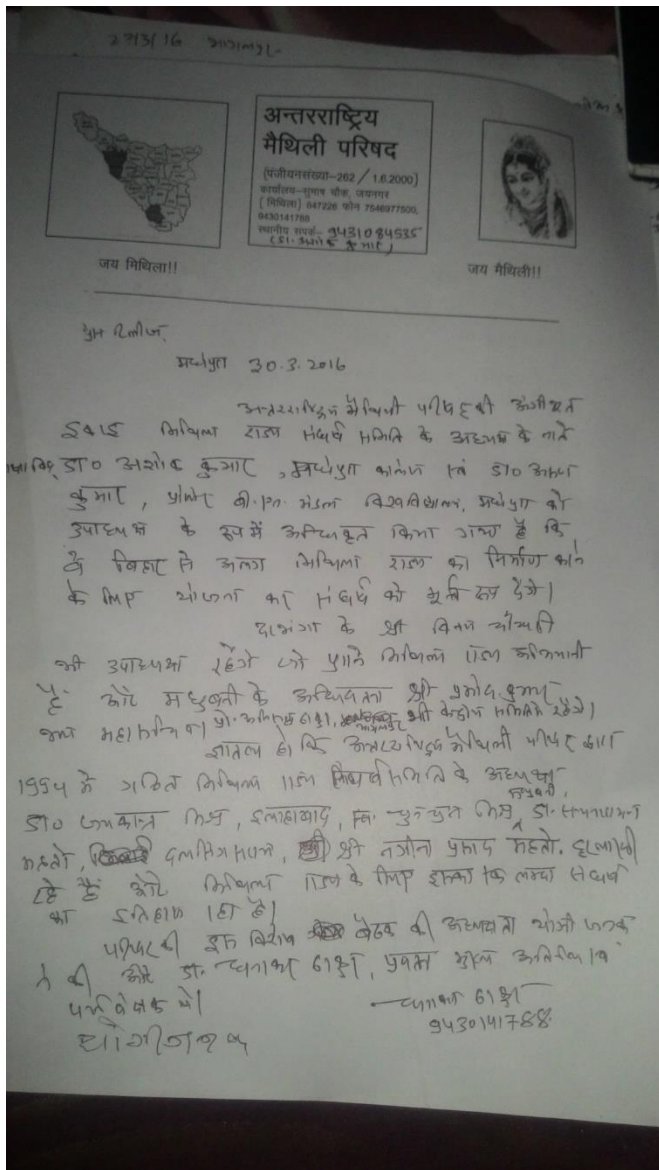 27/3/16 भागलपुर
अन्तरराष्ट्रिय
मैथिली परिषद
(पंजीयनसंख्या-262 / 1.6.2000)
कार्यालय-सुभाष चौक, जयनगर
(मिथिला) 847226 फोन 7546977500,
9430141788
स्थानीय संपर्क- 9431084535
(डा. अशोक कुमार)
जय मिथिला!!
जय मैथिली!!
प्रेस रिलीज,
मधेपुरा 30.3.2016
अन्तरराष्ट्रिय मैथिली परिषद की अंगीभूत
इकाई मिथिला राज्य संघर्ष समिति के अध्यक्ष के नाते
डा० अशोक कुमार, मधेपुरा कालेज एवं डा० अरुण
कुमार, बी.एन. मंडल विश्वविद्यालय, मधेपुरा को
उपाध्यक्ष के रूप में अधिकृत किया गया है कि
वे बिहार से अलग मिथिला राज्य का निर्माण करने
के लिए योजना का संघर्ष को मूर्त रूप देंगे।
दरभंगा के श्री विनय चौधरी
भी उपाध्यक्ष रहेंगे जो पुराने मिथिला राज्य अभियानी
हैं और मधुबनी के अधिवक्ता श्री प्रमोद कुमार
महासचिव प्रो. झा, भागलपुर भी केन्द्रीय समिति में रहेंगे।
ज्ञातव्य हो कि अन्तरराष्ट्रिय मैथिली परिषद द्वारा
1994 में गठित मिथिला राज्य संघर्ष समिति के अध्यक्ष
मधुबनी,
डा० जयकान्त मिश्र, इलाहाबाद, स्व. चुनचुन मिश्र, डा. सत्यनारायण
महतो, दलसिंगसराय, श्री नगीना प्रसाद महतो,
रहे हैं और मिथिला राज्य के लिए इनका एक लम्बा संघर्ष
का इतिहास रहा है।
परिषद की इस विशेष बैठक की अध्यक्षता योगी जनक
ने की और डा. धनाकर ठाकुर, प्रवक्ता मुख्य अतिथि एवं
पर्यवेक्षक थे।
धनाकर ठाकुर
9430141788
योगी जनक